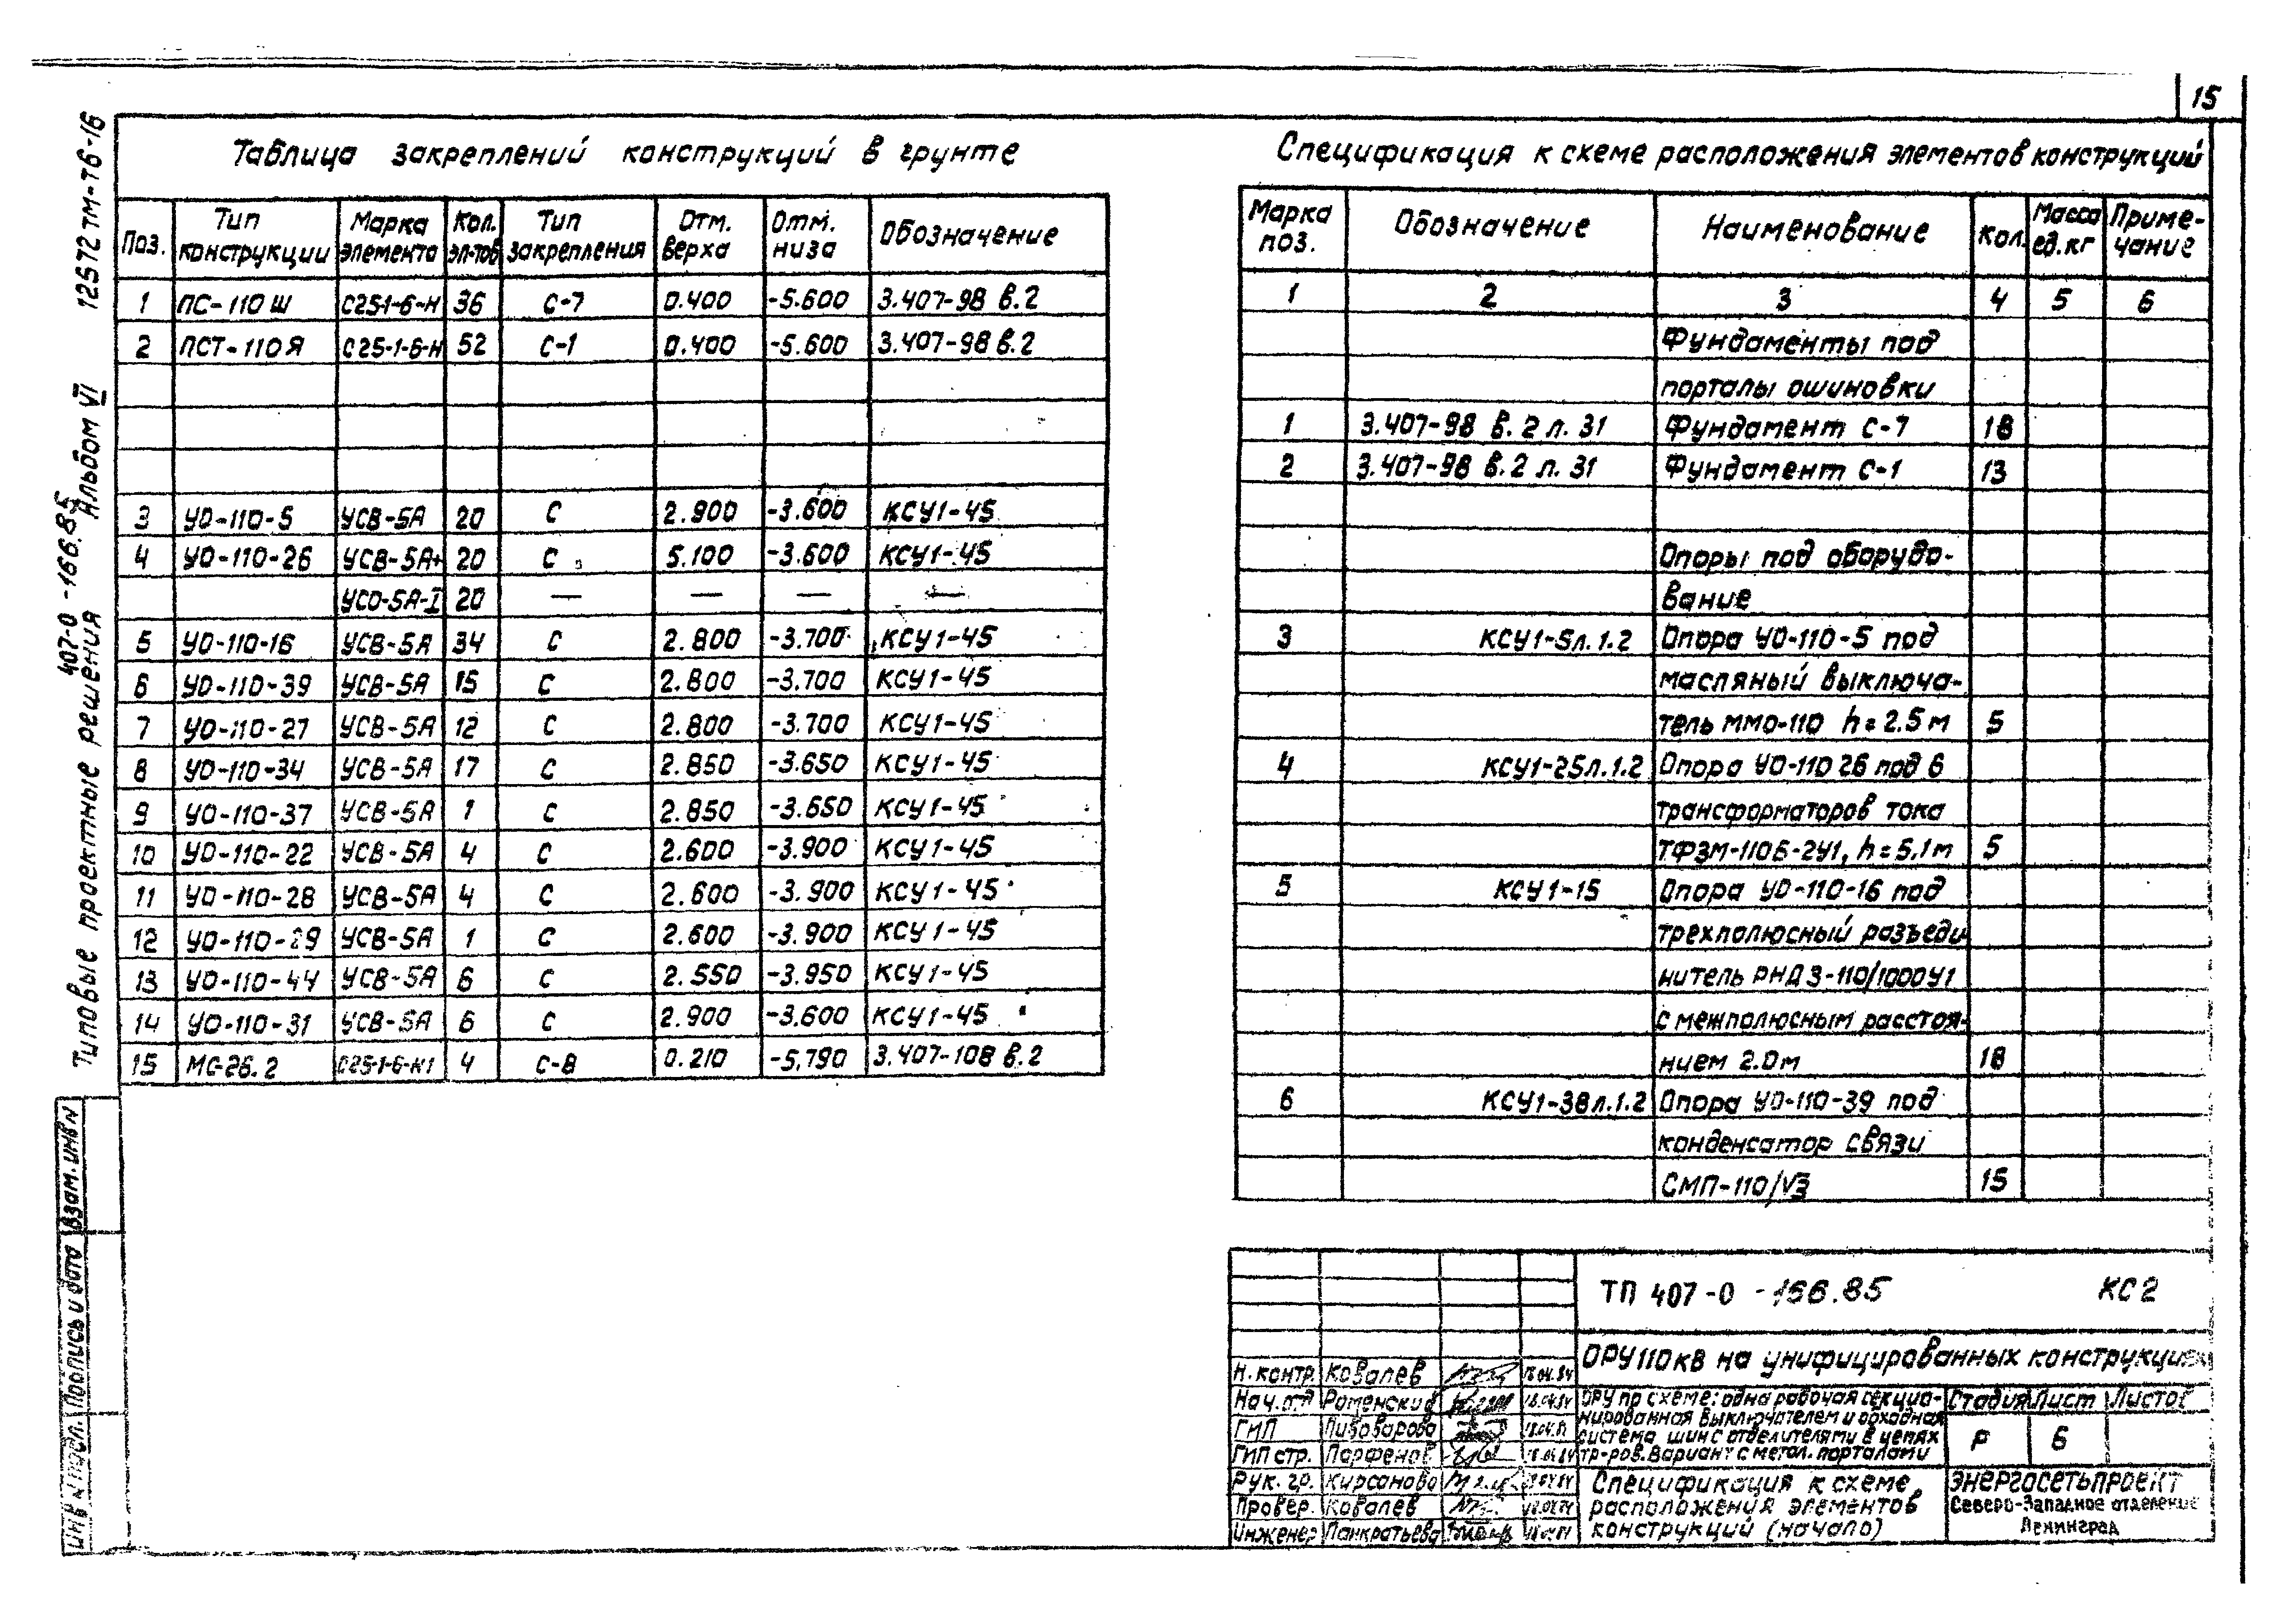 15
12572тм-т6-16
Альбом VI
407-0-166.85
Типовые проектные решения
Взам.инв№
Подпись и дата
Инв № подл.
Таблица закреплений конструкций в грунте
Поз. Тип конструкции Марка элемента Кол. эл-тов Тип закрепления Отм. верха Отм. низа Обозначение
1 ПС-110Ш С25-1-6-Н 36 С-7 0.400 -5.600 3.407-98 в.2
2 ПСТ-110Я С25-1-6-Н 52 С-1 0.400 -5.600 3.407-98 в.2
3 УО-110-5 УСВ-5А 20 С 2.900 -3.600 КСУ1-45
4 УО-110-26 УСВ-5А+ 20 С 5.100 -3.600 КСУ1-45
УСО-5А-I 20 — — — —
5 УО-110-16 УСВ-5А 34 С 2.800 -3.700 КСУ1-45
6 УО-110-39 УСВ-5А 15 С 2.800 -3.700 КСУ1-45
7 УО-110-27 УСВ-5А 12 С 2.800 -3.700 КСУ1-45
8 УО-110-34 УСВ-5А 17 С 2.850 -3.650 КСУ1-45
9 УО-110-37 УСВ-5А 1 С 2.850 -3.650 КСУ1-45
10 УО-110-22 УСВ-5А 4 С 2.600 -3.900 КСУ1-45
11 УО-110-28 УСВ-5А 4 С 2.600 -3.900 КСУ1-45
12 УО-110-29 УСВ-5А 1 С 2.600 -3.900 КСУ1-45
13 УО-110-44 УСВ-5А 6 С 2.550 -3.950 КСУ1-45
14 УО-110-31 УСВ-5А 6 С 2.900 -3.600 КСУ1-45
15 МС-26.2 С25-1-6-Н1 4 С-8 0.210 -5.790 3.407-108 в.2
Спецификация к схеме расположения элементов конструкций
Марка поз. Обозначение Наименование Кол. Масса ед.кг Приме-чание
1 2 3 4 5 6
Фундаменты под
порталы ошиновки
1 3.407-98 в.2 л.31 Фундамент С-7 18
2 3.407-98 в.2 л.31 Фундамент С-1 13
Опоры под оборудо-
вание
3 КСУ1-5л.1.2 Опора УО-110-5 под
масляный выключа-
тель ММО-110 h=2.5м 5
4 КСУ1-25л.1.2 Опора УО-110 26 под 6
трансформаторов тока
ТФЗМ-110Б-2У1, h=5.1м 5
5 КСУ1-15 Опора УО-110-16 под
трехполюсный разъеди
нитель РНДЗ-110/1000У1
с межполюсным расстоя-
нием 2.0м 18
6 КСУ1-38л.1.2 Опора УО-110-39 под
конденсатор связи
СМП-110/√3 15
ТП 407-0-166.85 КС2
ОРУ110кВ на унифицированных конструкциях
Н.контр. Ковалев
Нач.отд Роменский
ГИП Пивоварова
ГИП стр. Парфенов
Рук. гр. Кирсанова
Провер. Ковалев
Инженер Панкратьева
ОРУ по схеме: одна рабочая секцио-
нированная выключателем и обходная
система шин с отделителями в цепях
тр-ров. Вариант с метал. порталами
Стадия Лист Листов
Р 6
Спецификация к схеме
расположения элементов
конструкций (начало)
ЭНЕРГОСЕТЬПРОЕКТ
Северо-Западное отделение
Ленинград